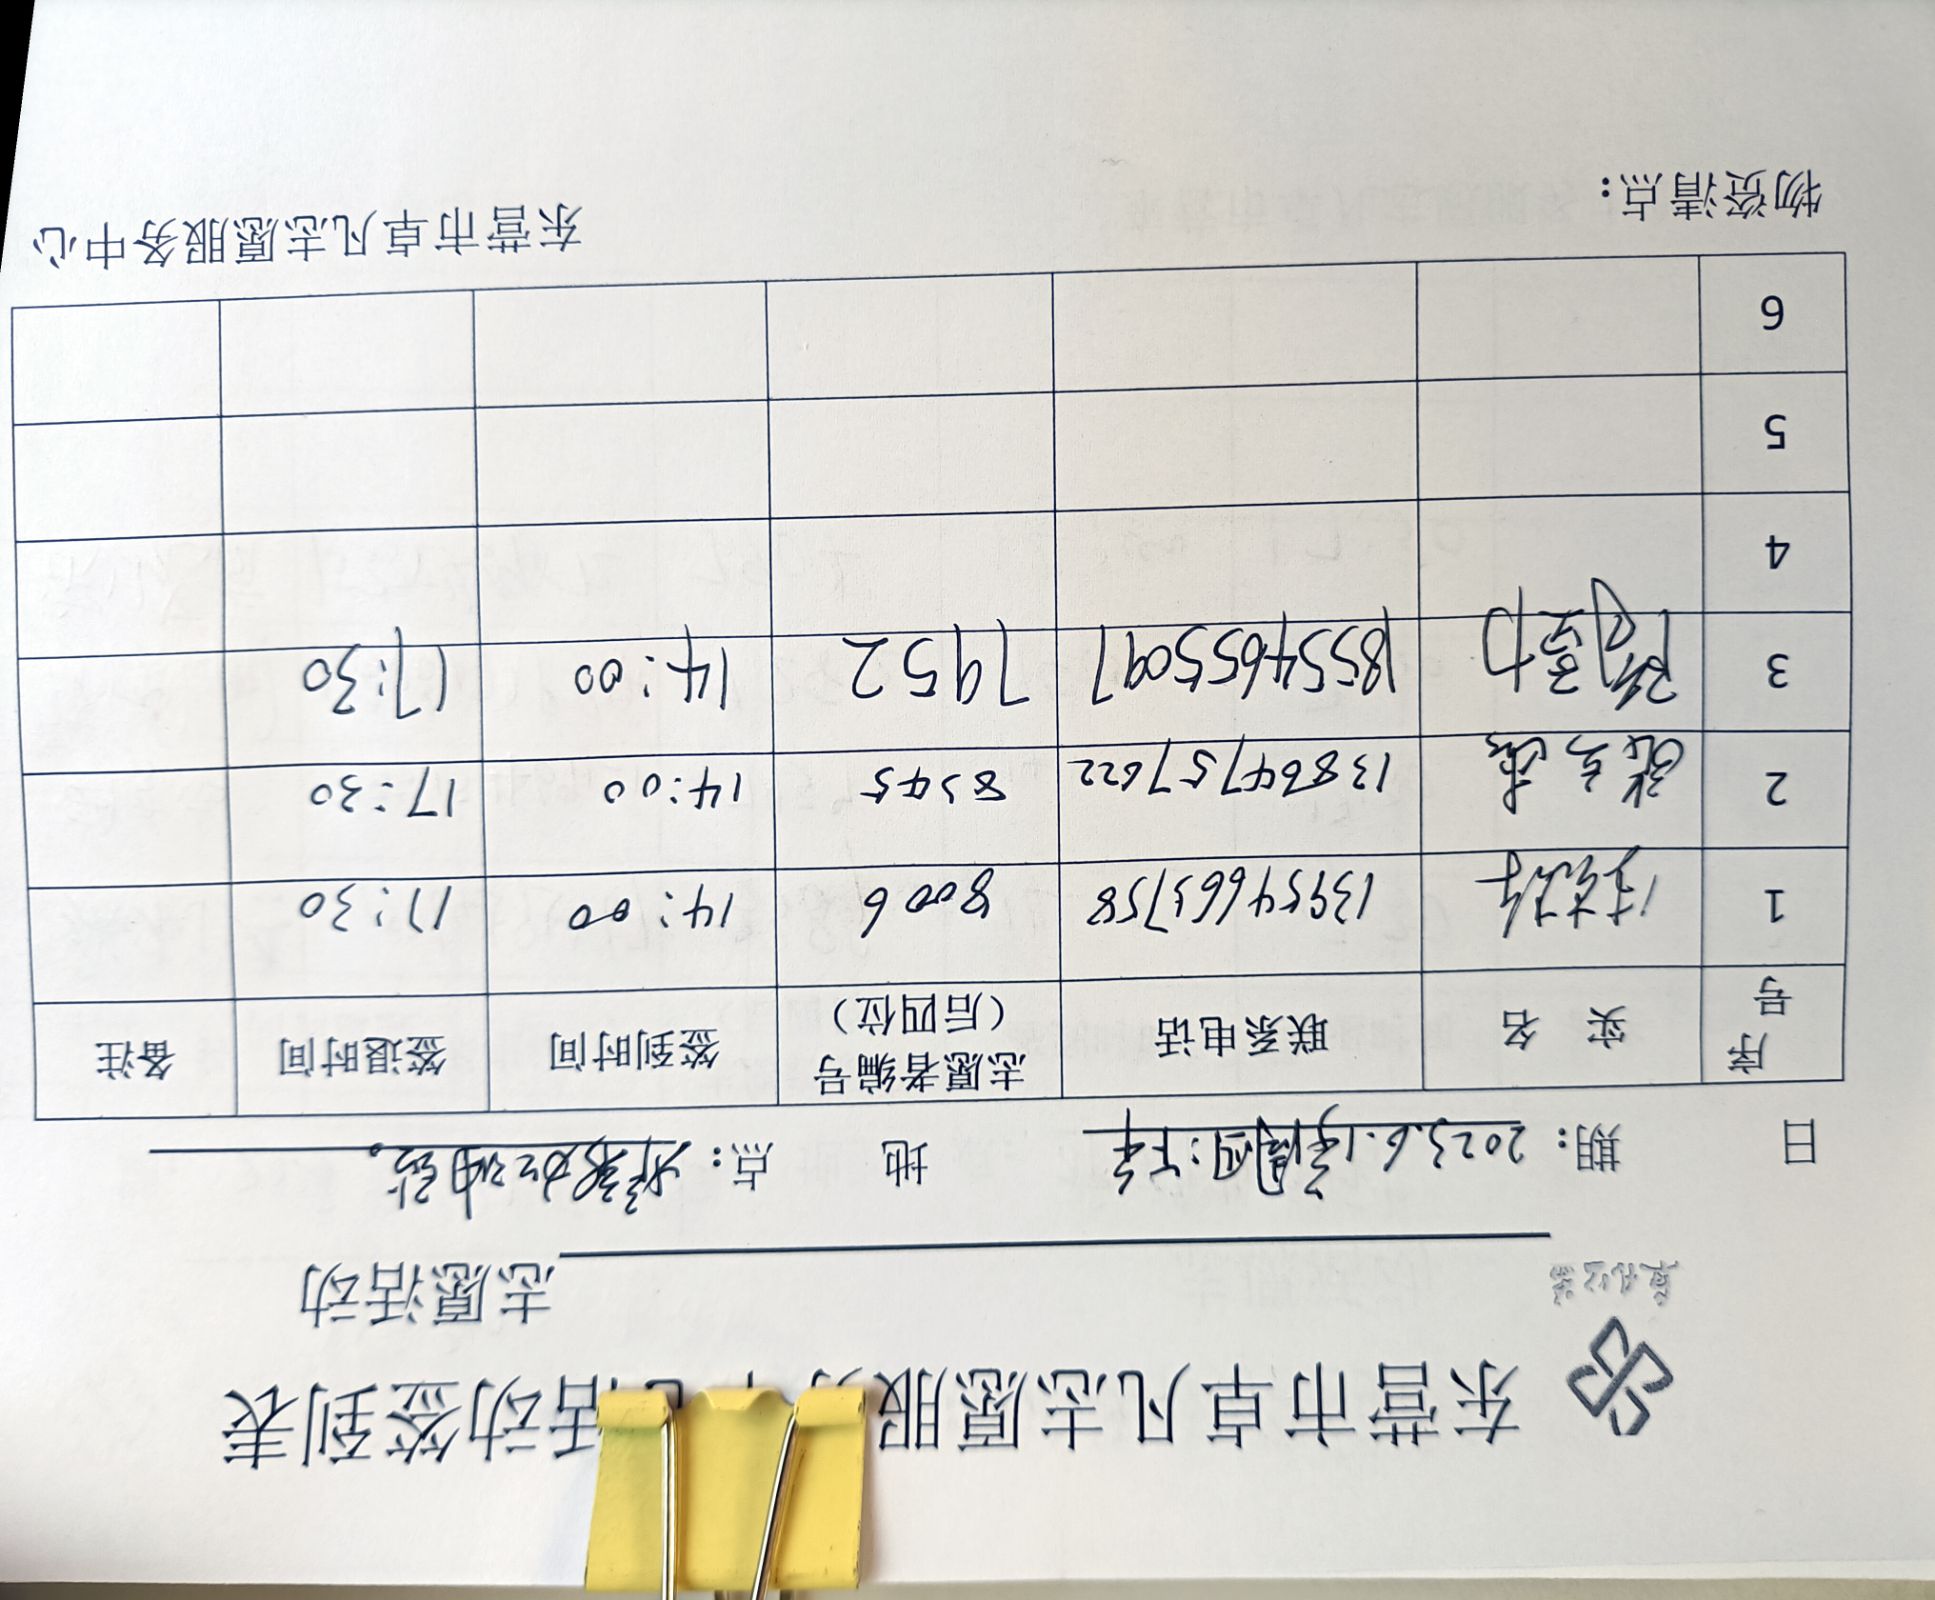 东营市卓凡志愿服务 活动签到表
卓凡公益
志愿活动
日 期：2023.6.1 周四：下午 地 点： 加油站。
序号 实 名 联系电话 志愿者编号（后四位） 签到时间 签退时间 备注
1 13954663758 8006 14:00 17:30
2 13864757622 8345 14:00 17:30
3 18554655097 7952 14:00 17:30
4
5
6
物资清点： 东营市卓凡志愿服务中心